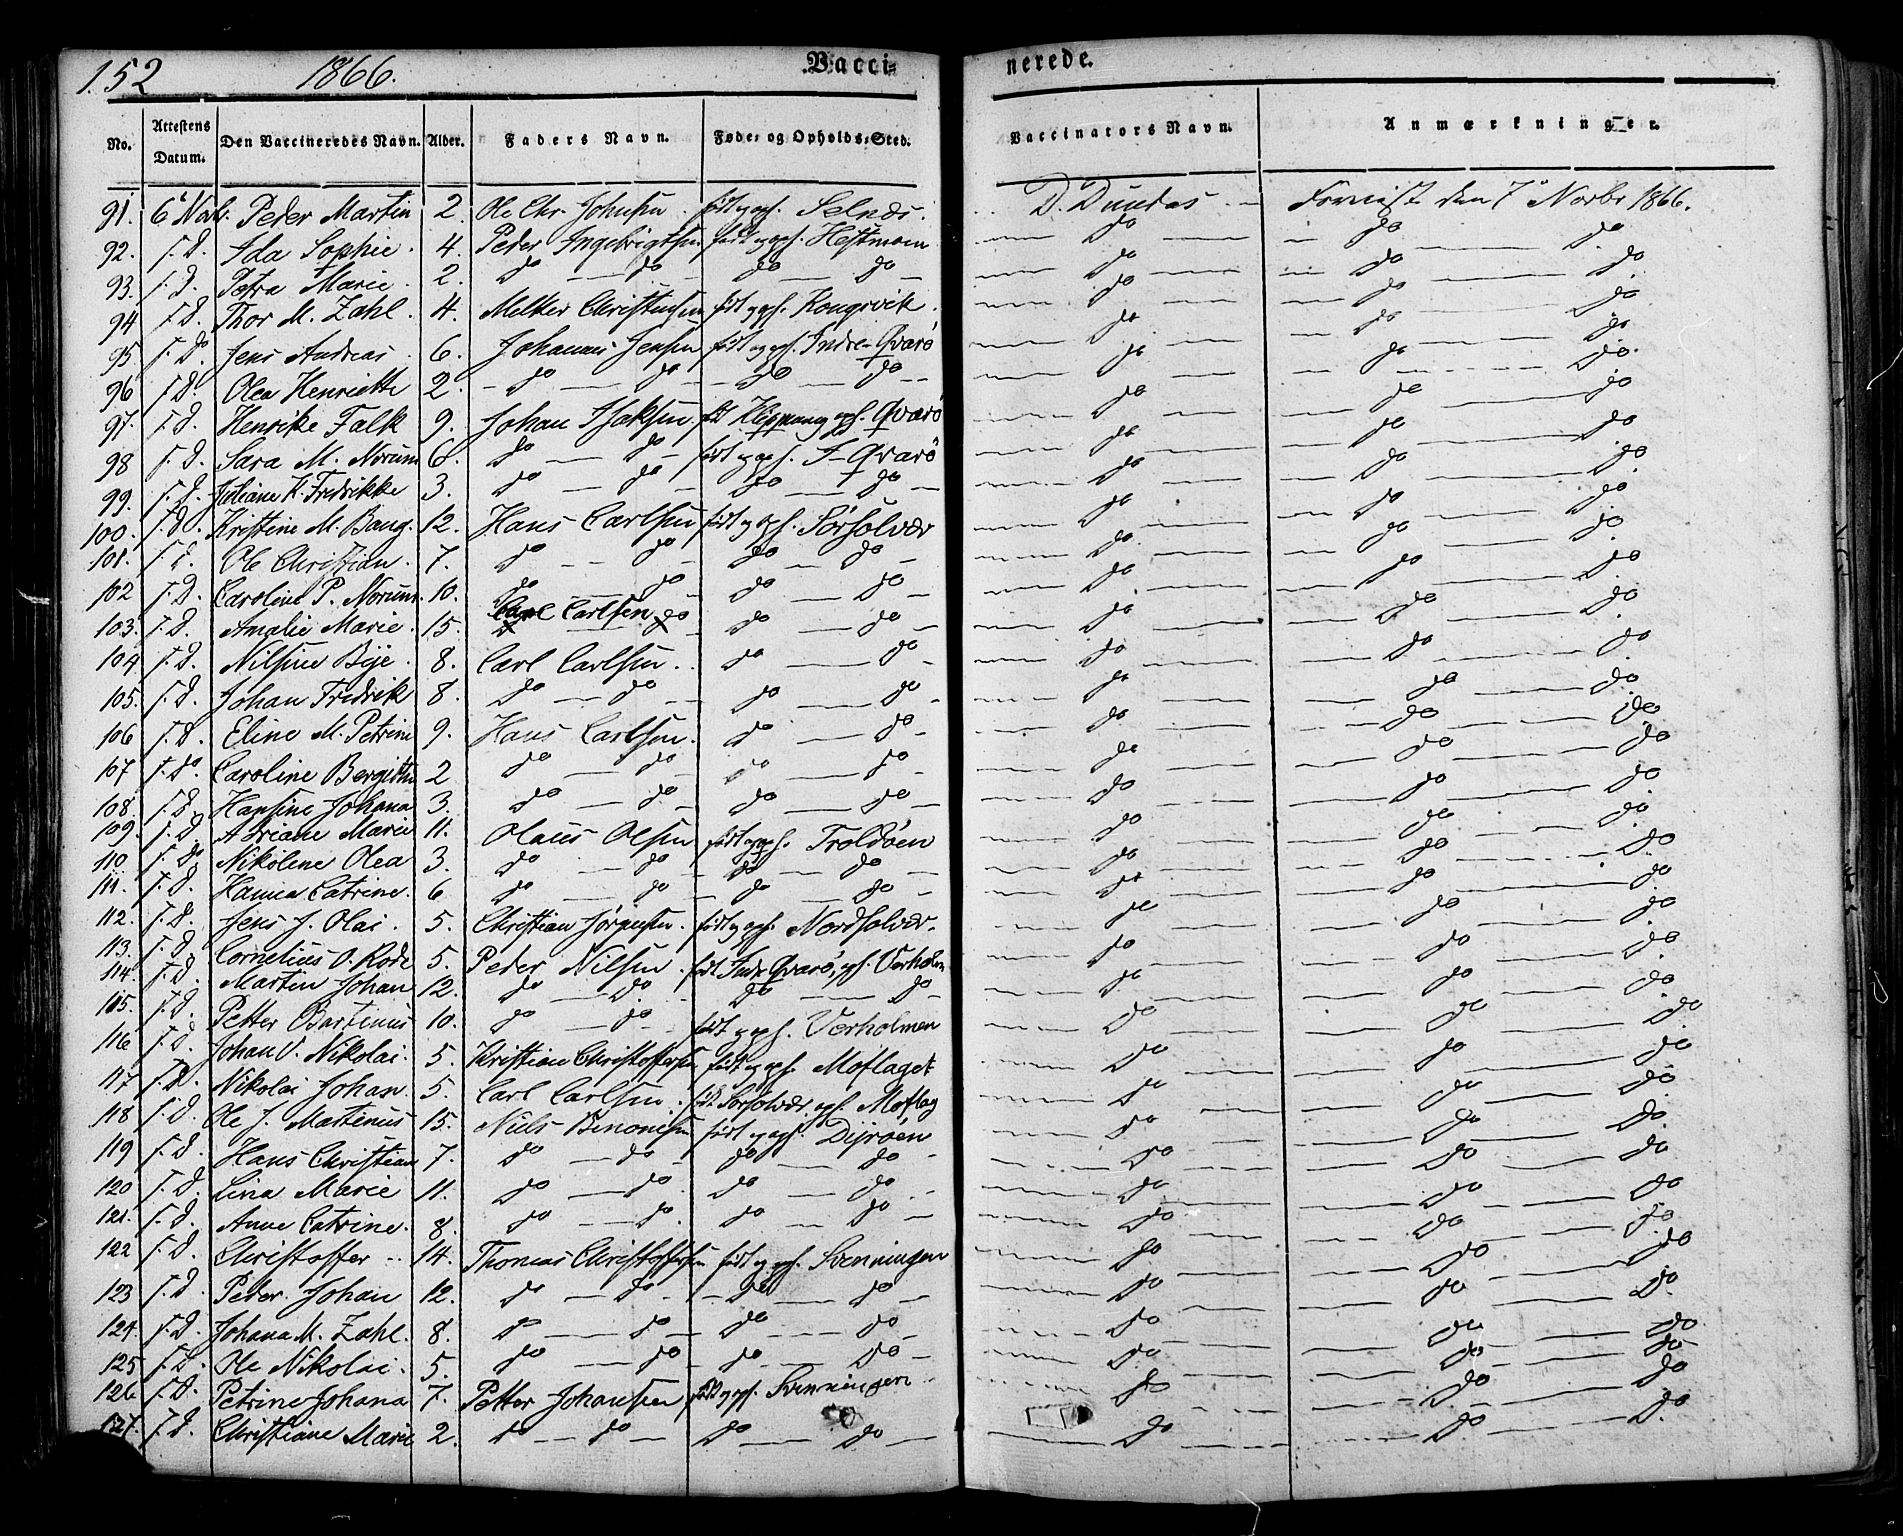 152 1866. Vacci= nerede.
No. Attestens Datum. Den Vaccineredes Navn. Alder. Faders Navn. Føde- og Opholds-Sted. Vaccinators Navn. Anmærkninger.
91. 6t Novbr. Peder Martin 2. Ole Chr. Johnsen født og oph. Selnæs. D. Dundas Forevist den 7de Novbr 1866.
92. s. D. Ida Sophie 4. Peder Ingebrigtsen født og oph. Hestmoen do do do
93. s. D. Petra Marie 2. do do do do do do do
94 s. D. Thor M. Zahl. 4. Melker Christensen født og oph. Kongsvik. do do do
95 s. D. Jens Andreas 6. Johannes Jensen født og oph. Indre-Qvarø do do do
96 s. D. Olea Henriette 2. do do do do do do do
97. s. D. Henrike Falk 9. Johan Isaksen fdt oph. Qvarø do do do
98 s. D. Sara M. Norum 6. do do født og oph. I-Qvarø do do do
99. s. D. Juliane K. Fredrikke 3. do do do do do do do
100. s. D. Kristine M. Bang. 12. Hans Carlsen født og oph. Sørsolvær do do do
101. s. D. Ole Christian 7. do do do do do do do
102 s. D. Caroline P. Norum. 10. do do do do do do do
103. s. D. Amalie Marie 15. Carl Carlsen do do do do do do
104 s. D. Nilsine Bye 8. Carl Carlsen do do do do do
105. s. D. Johan Fredrik 8. do do do do do do do
106 s. D. Eline M. Petrine 9. Hans Carlsen. do do do do do
107 s. D. Caroline Bergitte 2 do do do do do do do
108. s. D. Hansine Johana 3. do do do do do do do
109. s. D. Adriane Marie 11. Olaus Olsen født og oph. Troldøen do do do
110 s. D. Nikoline Olea 3. do do do do do do do
111. s. D. Hanna Catrine. 6 do do do do do do do
112. s. D. Jens J. Olai. 5. Christian Jørgensen. født og oph. Nordsolvær. do do do
113. s. D. Cornelius O. Rode 5. Peder Nilsen født Indr Qvarø, oph. Værholm do do do
114. s. D. Martin Johan 12. do do do do do do do
115. s. D. Petter Bartinus 10. do do født og oph. Værholmen do do do
116 s. D. Johan V. Nikolai. 5. Kristian Christoffersen født og oph. Moflaget do do do
117 s. D. Nikolai Johan. 5. Carl Carlsen født Sørsolvær, oph. Moflag do do do
118 s. D. Ole J. Martinus 15. Niels Benonisen født og oph. Dijrøen do do do
119 s. D. Hans Christian 7. do do do do do do do
120 s. D. Lina Marie 11. do do do do do do do
121. s. D. Anne Catrine. 8. do do do do do do do
122 s. D. Christoffer 14. Thomas Christoffersen født og oph. Svenningen do do do
123 s. D. Peder Johan 12. do do do do do do do
124. s. D. Johana M. Zahl. 8. do do do do do do do
125 s. D. Ole Nikolai. 5. do do do do do do do
126 s. D. Petrine Johana 7. Petter Johansen født og oph. Svenningen do do do
127. s. D. Christiane Marie 2. do do do do do do do